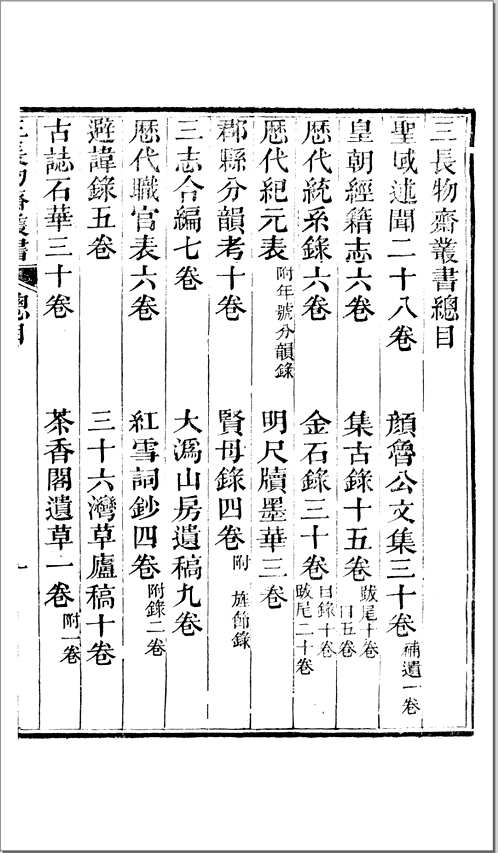 三長物齋叢書總目
聖域述聞二十八卷 顏魯公文集三十卷補遺一卷
皇朝經籍志六卷 集古錄十五卷跋尾十卷目五卷
歷代統系錄六卷 金石錄三十卷目錄十卷跋尾二十卷
歷代紀元表附年號分韻錄 明尺牘墨華三卷
郡縣分韻考十卷 賢母錄四卷附旌節錄
三志合編七卷 大潙山房遺稿九卷
歷代職官表六卷 紅雪詞鈔四卷附錄二卷
避諱錄五卷 三十六灣草廬稿十卷
古誌石華三十卷 茶香閣遺草一卷附一卷
三長物齋叢書 總目 一